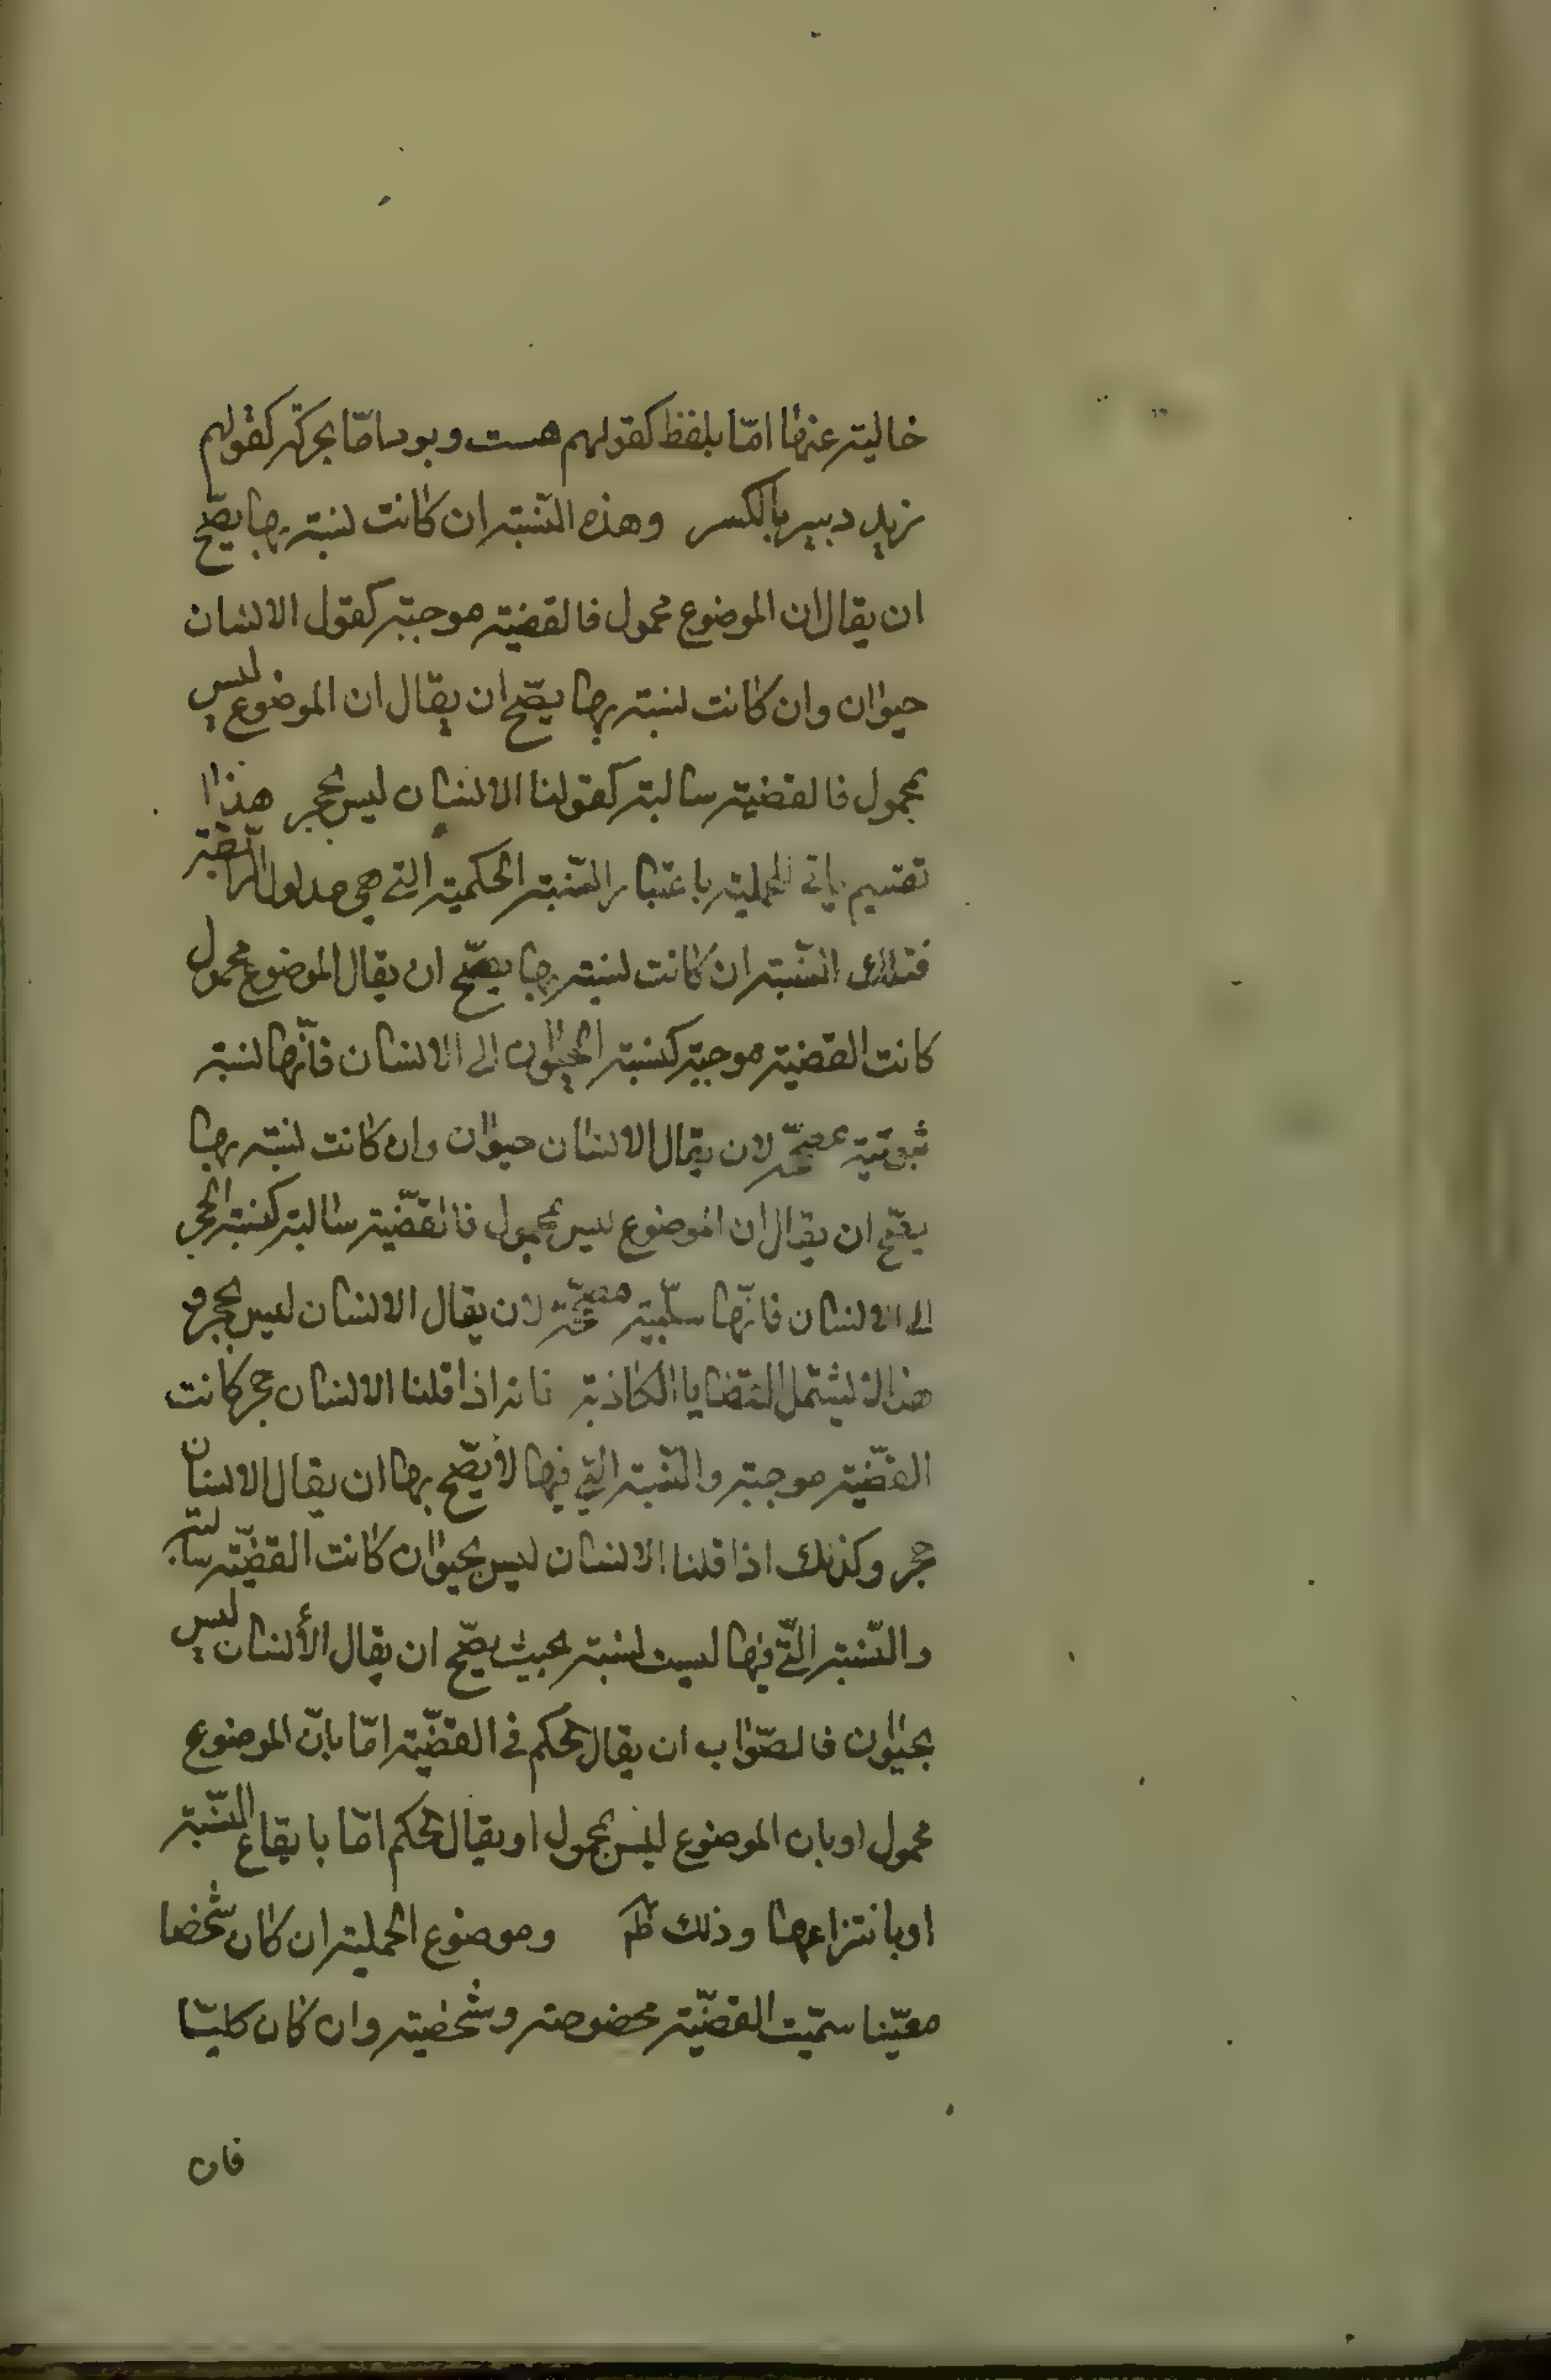 خالية عنها امّا بلفظ كقولهم هست وبود امّا بحركة كقولهم
زيد دبير بالكسر وهذه النّسبة ان كانت نسبة بها يصّح
ان يقال ان الموضوع محمول فالقضية موجبة كقول الانسان
حيوان وان كانت نسبة بها يصّح ان يقال ان الموضوع ليس
بمحمول فالقضية سالبة كقولنا الانسان ليس بحجر هذا
تقسيم ثانى للحملية باعتبار النّسبة الحكمية التى هى مدلول الرابطة
فتلك النّسبة ان كانت نسبة بها يصّح ان يقال الموضوع محمول
كانت القضية موجبة كنسبة الحيوان الى الانسان فانّها نسبة
ثبوتية مصحّحة لان يقال الانسان حيوان وان كانت نسبة بها
يصّح ان يقال ان الموضوع ليس بمحمول فالقضّية سالبة كنسبة الحجر
الى الانسان فانّها سلبّية مصحّحة لان يقال الانسان ليس بحجر و
هذا لا يشتمل القضايا الكاذبة فانه اذا قلنا الانسان حجر كانت
القضّية موجبة والنّسبة التى فيها لا يصّح بها ان يقال الانسان
حجر وكذلك اذا قلنا الانسان ليس بحيوان كانت القضّية سالبة
والنّسبة الّتى فيها ليست نسبة بحيث يصّح ان يقال الأنسان ليس
بحيوان فالصّواب ان يقال الحكم فى القضّية امّا بانّ الموضوع
محمول او بان الموضوع ليس بمحمول او يقال الحكم امّا بايقاع النّسبة
او بانتزاعها وذلك ظم وموضوع الحملية ان كان شخصا
معيّنا سمّيت القضّية مخصوصة وشخصية وان كان كليّا
فان